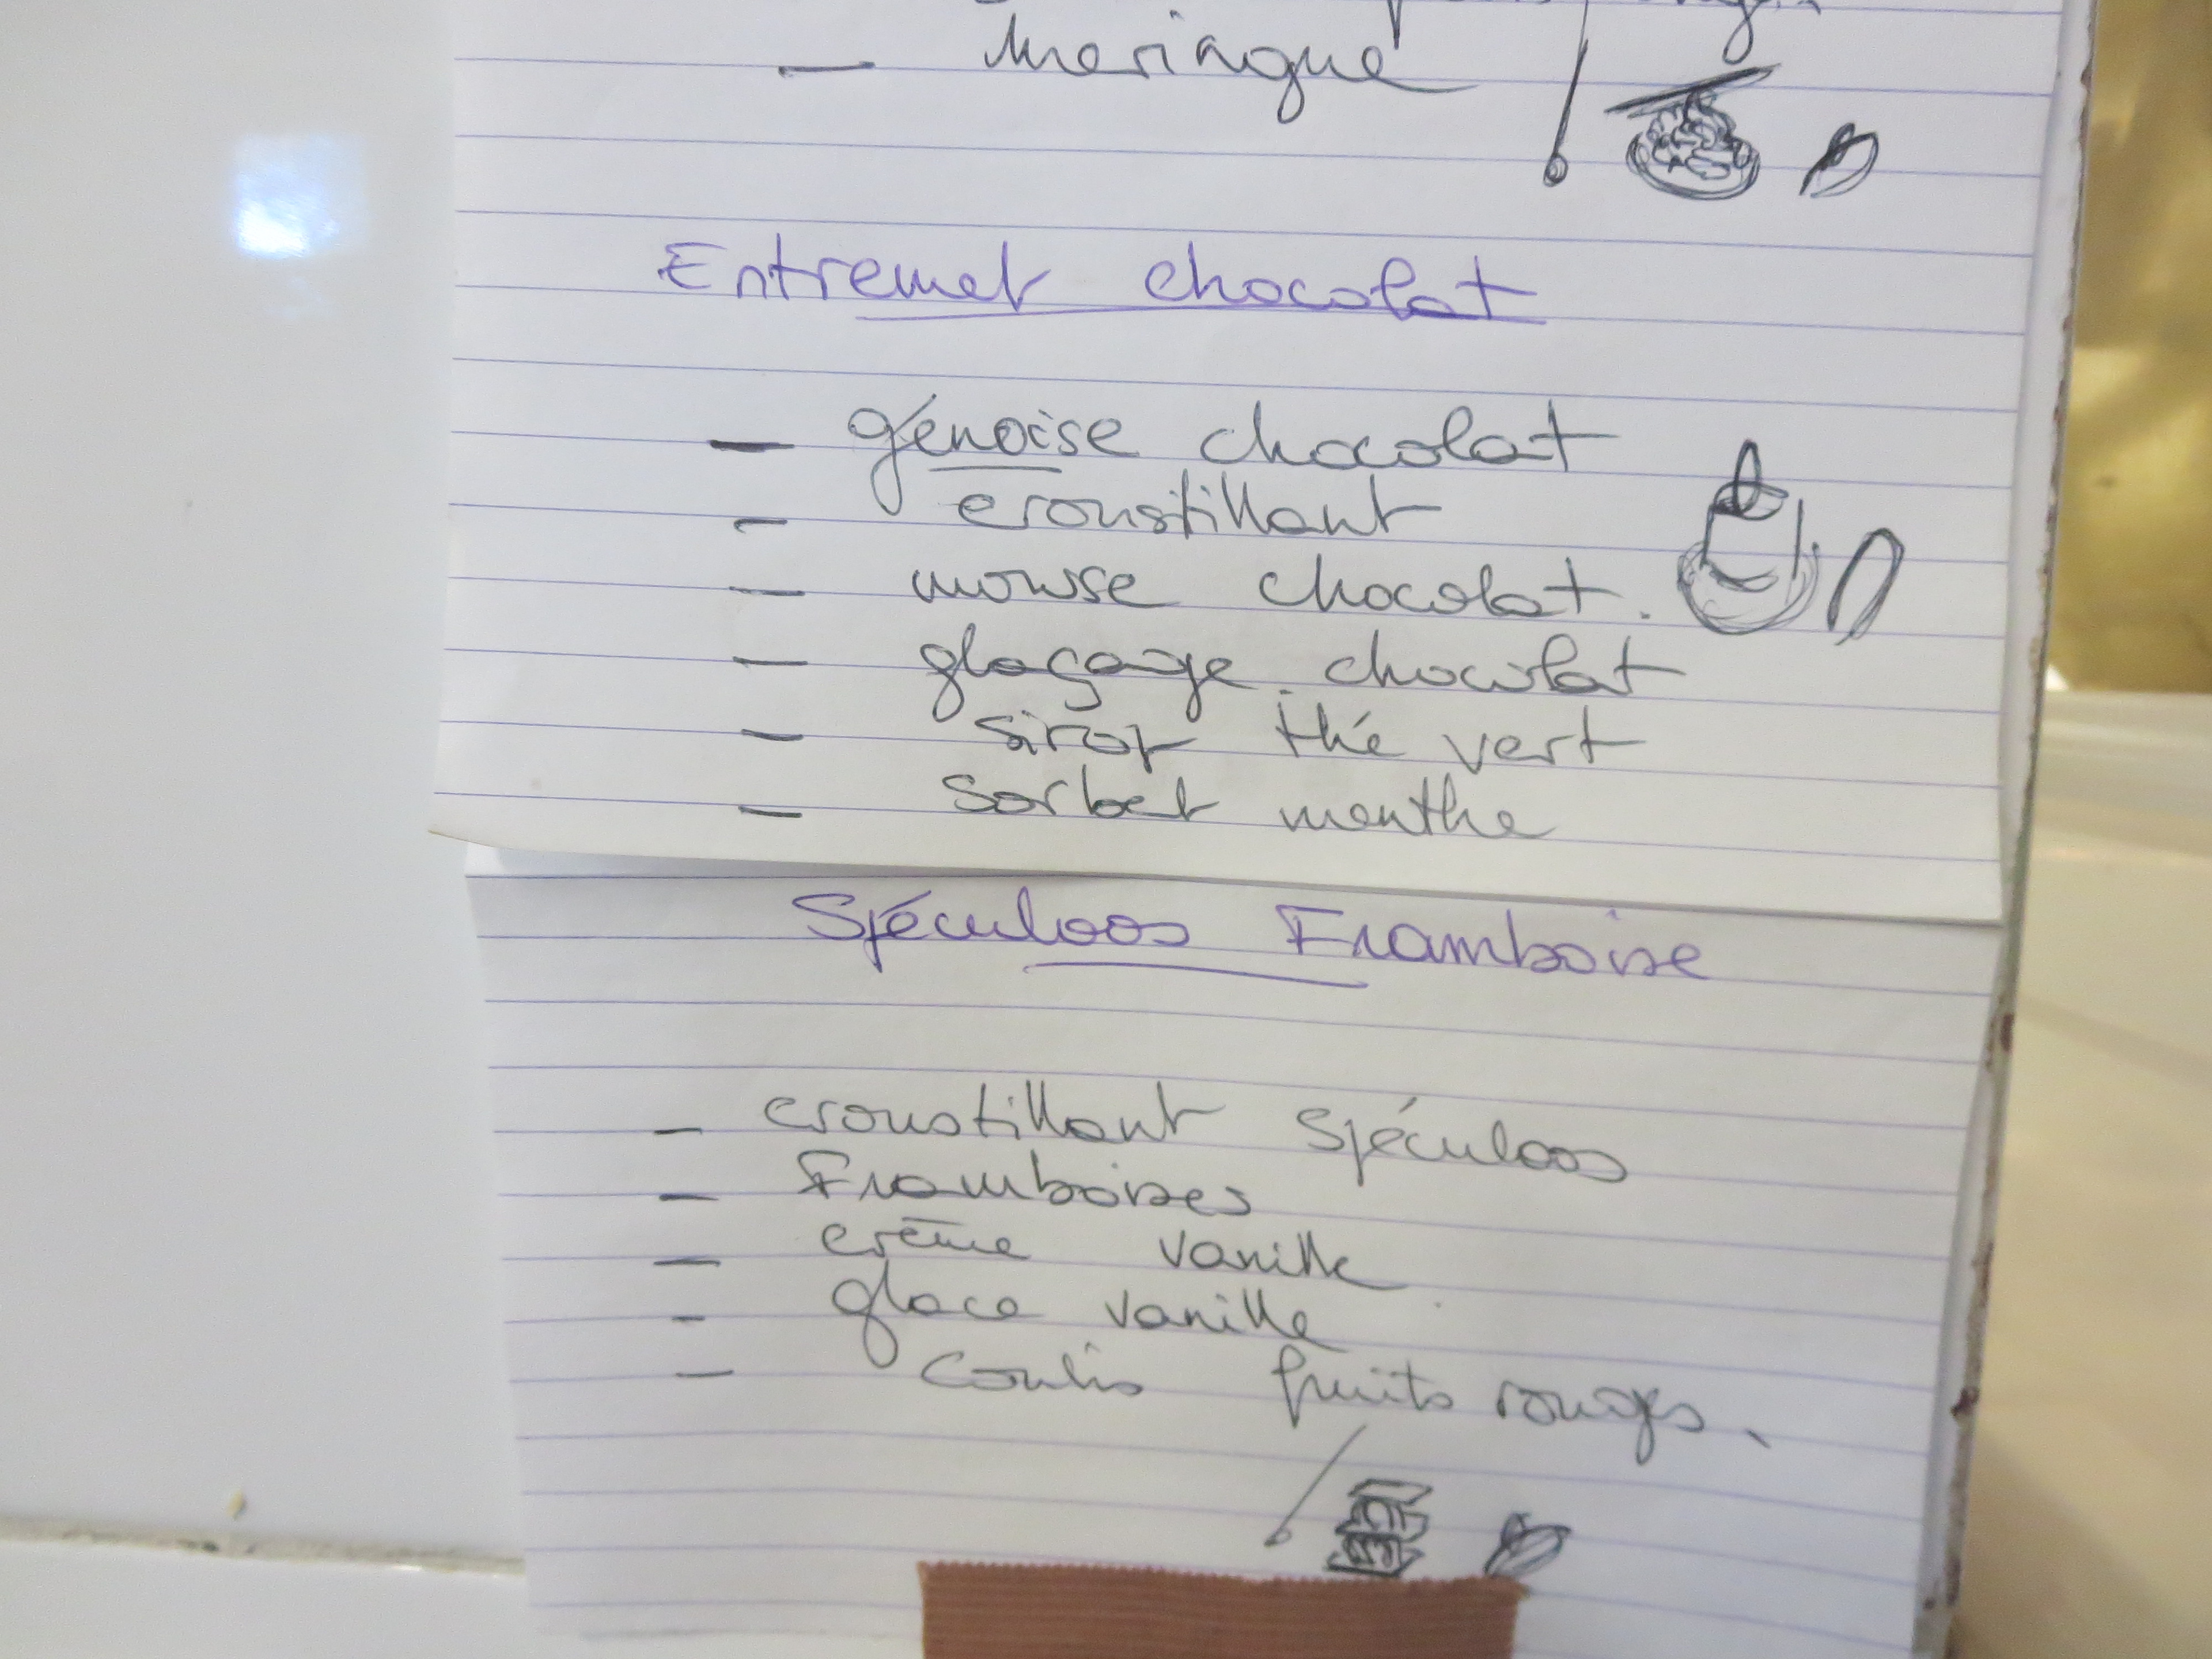 — meringue
Entremet chocolat
— génoise chocolat
— croustillant
— mousse chocolat.
— glaçage chocolat
— sirop thé vert
— sorbet menthe
Spéculoos Framboise
— croustillant spéculoos
— Framboises
— crème vanille
- glace vanille
— coulis fruits rouges.